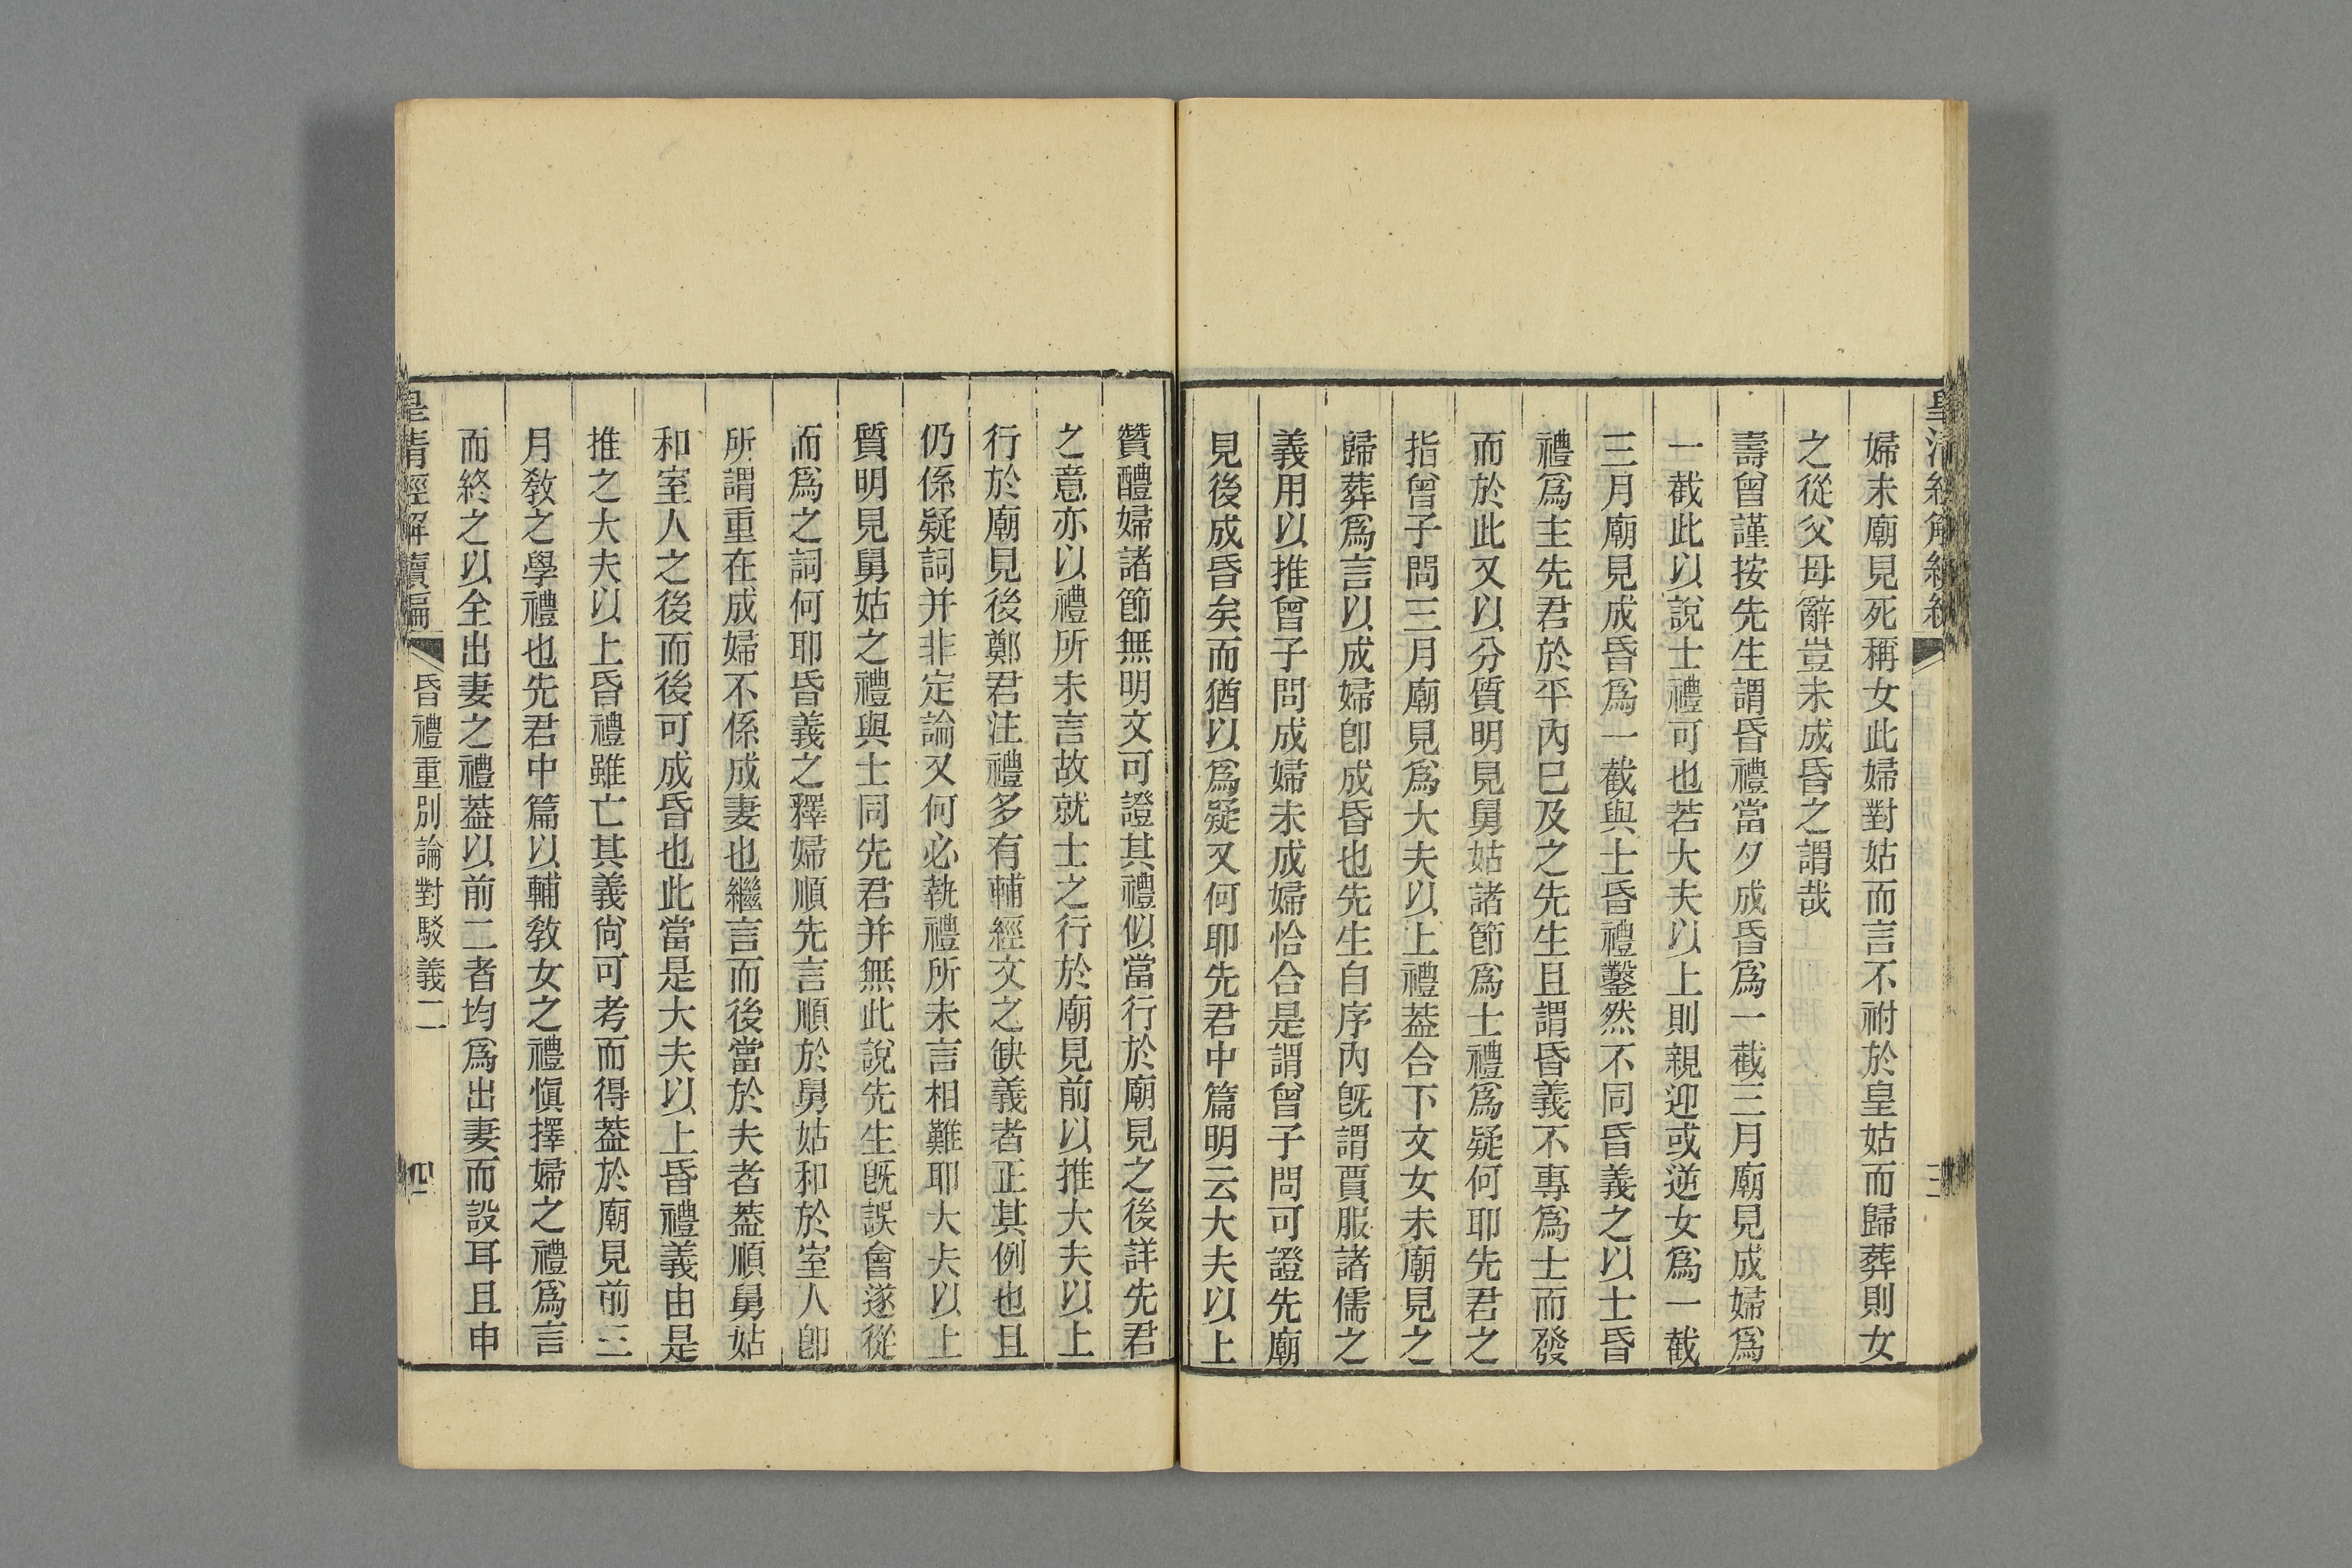 婦未廟見死稱女此婦對姑而言不祔於皇姑而歸葬則女
之從父母辭豈未成昏之謂哉
壽曾謹按先生謂昏禮當夕成昏爲一截三月廟見成婦爲
一截此以說士禮可也若大夫以上則親迎或逆女爲一截
三月廟見成昏爲一截與士昏禮鑿然不同昏義之以士昏
禮爲主先君於平內巳及之先生且謂昏義不專爲士而發
而於此又以分質明見舅姑諸節爲士禮爲疑何耶先君之
指曾子問三月廟見爲大夫以上禮葢合下文女未廟見之
歸葬爲言以成婦卽成昏也先生自序內旣謂賈服諸儒之
義用以推曾子問成婦未成婦恰合是謂曾子問可證先廟
見後成昏矣而猶以爲疑又何耶先君中篇明云大夫以上
贊醴婦諸節無明文可證其禮似當行於廟見之後詳先君
之意亦以禮所未言故就士之行於廟見前以推大夫以上
行於廟見後鄭君注禮多有輔經文之缺義者正其例也且
仍係疑詞并非定論又何必執禮所未言相難耶大夫以上
質明見舅姑之禮與士同先君并無此說先生旣誤會遂從
而爲之詞何耶昏義之釋婦順先言順於舅姑和於室人卽
所謂重在成婦不係成妻也繼言而後當於夫者葢順舅姑
和室人之後而後可成昏也此當是大夫以上昏禮義由是
推之大夫以上昏禮雖亡其義尙可考而得葢於廟見前三
月敎之學禮也先君中篇以輔敎女之禮愼擇婦之禮爲言
而終之以全出妻之禮葢以前二者均爲出妻而設耳且申
皇清經解續編
昏禮重別論對駁義二
四